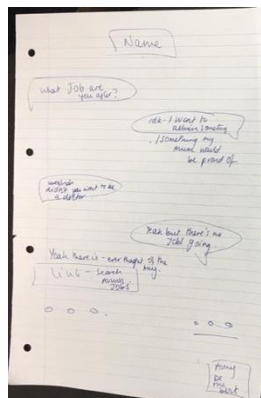 Name
What Job are
you after?
idk - I want to
achieve someting
/ something my
mum would
be proud of
didn't you want to be
a doctor
Yeah but there's no
Jobs going.
Yeah there is - ever thought of the
Army.
Link - search
Army
Jobs
Army
be
the
best